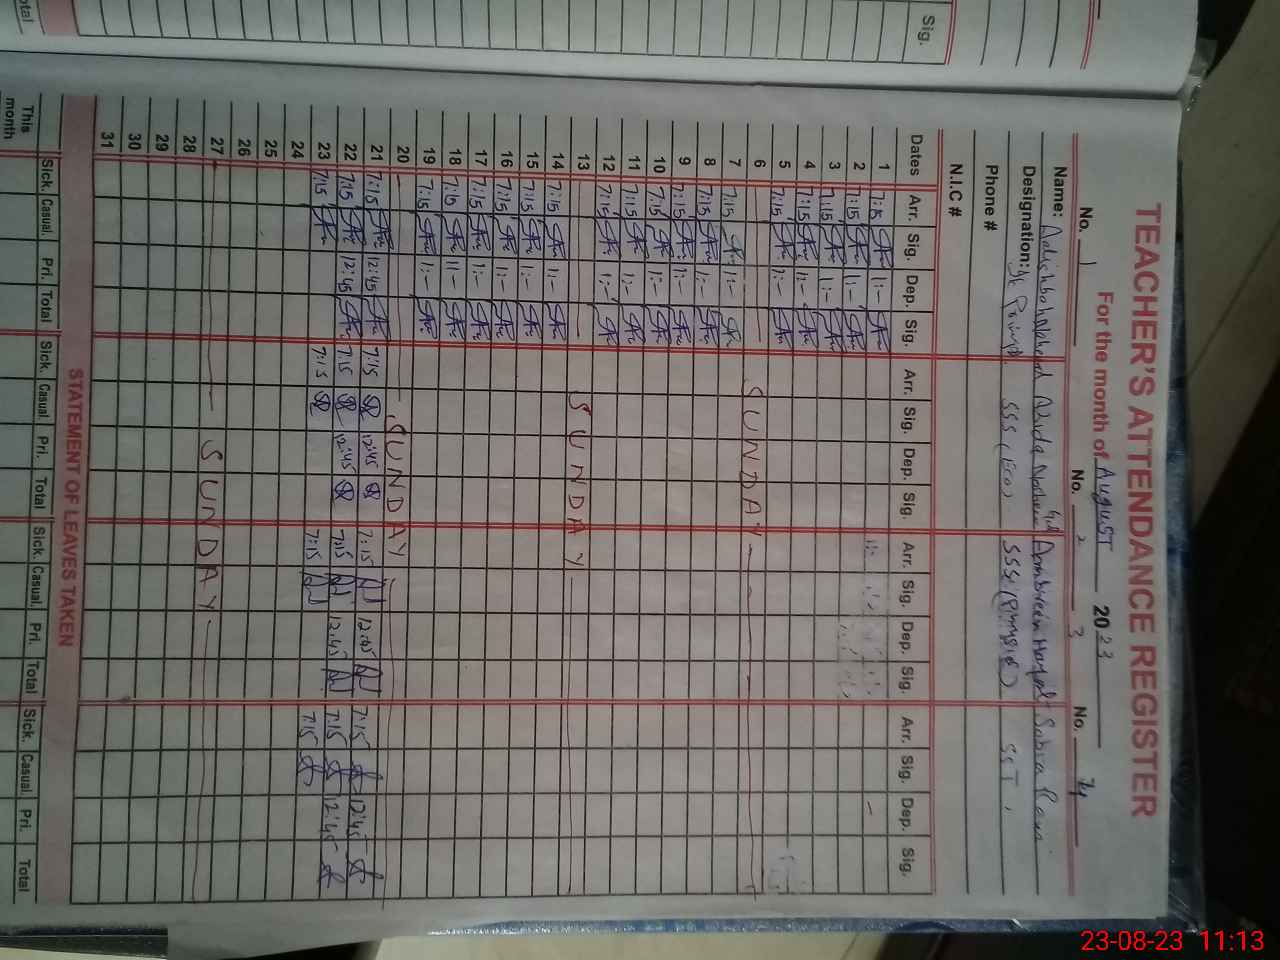 Sig.
TEACHER'S ATTENDANCE REGISTER
For the month of August 2023
No. 1 No. 2 3 No. 4
Name: Rida Ambreen Sabra
Designation: SSS (Eco) SSS (Physics) SST
Phone #
N.I.C #
Dates Arr. Sig. Dep. Sig. Arr. Sig. Dep. Sig. Arr. Sig. Dep. Sig. Arr. Sig. Dep. Sig.
1 7:15 1:-
2 7:15 1:-
3 7:15 1:-
4 7:15 1:-
5 7:15 1:-
6 SUNDAY
7 7:15 1:-
8 7:15 1:-
9 7:15 1:-
10 7:15 1:-
11 7:15 1:-
12 7:15 1:-
13 SUNDAY
14 7:15 1:-
15 7:15 1:-
16 7:15 1:-
17 7:15 1:-
18 7:15 1:-
19 7:15 1:-
20 SUNDAY
21 7:15 12:45 7:15 12:45 7:15 12:45 7:15 12:45
22 7:15 12:45 7:15 12:45 7:15 12:45 7:15 12:45
23 7:15 7:15 7:15 7:15
24
25
26
27 SUNDAY
28
29
30
31
STATEMENT OF LEAVES TAKEN
Sick. Casual. Pri. Total Sick. Casual. Pri. Total Sick. Casual. Pri. Total Sick. Casual. Pri. Total
This month
23-08-23 11:13